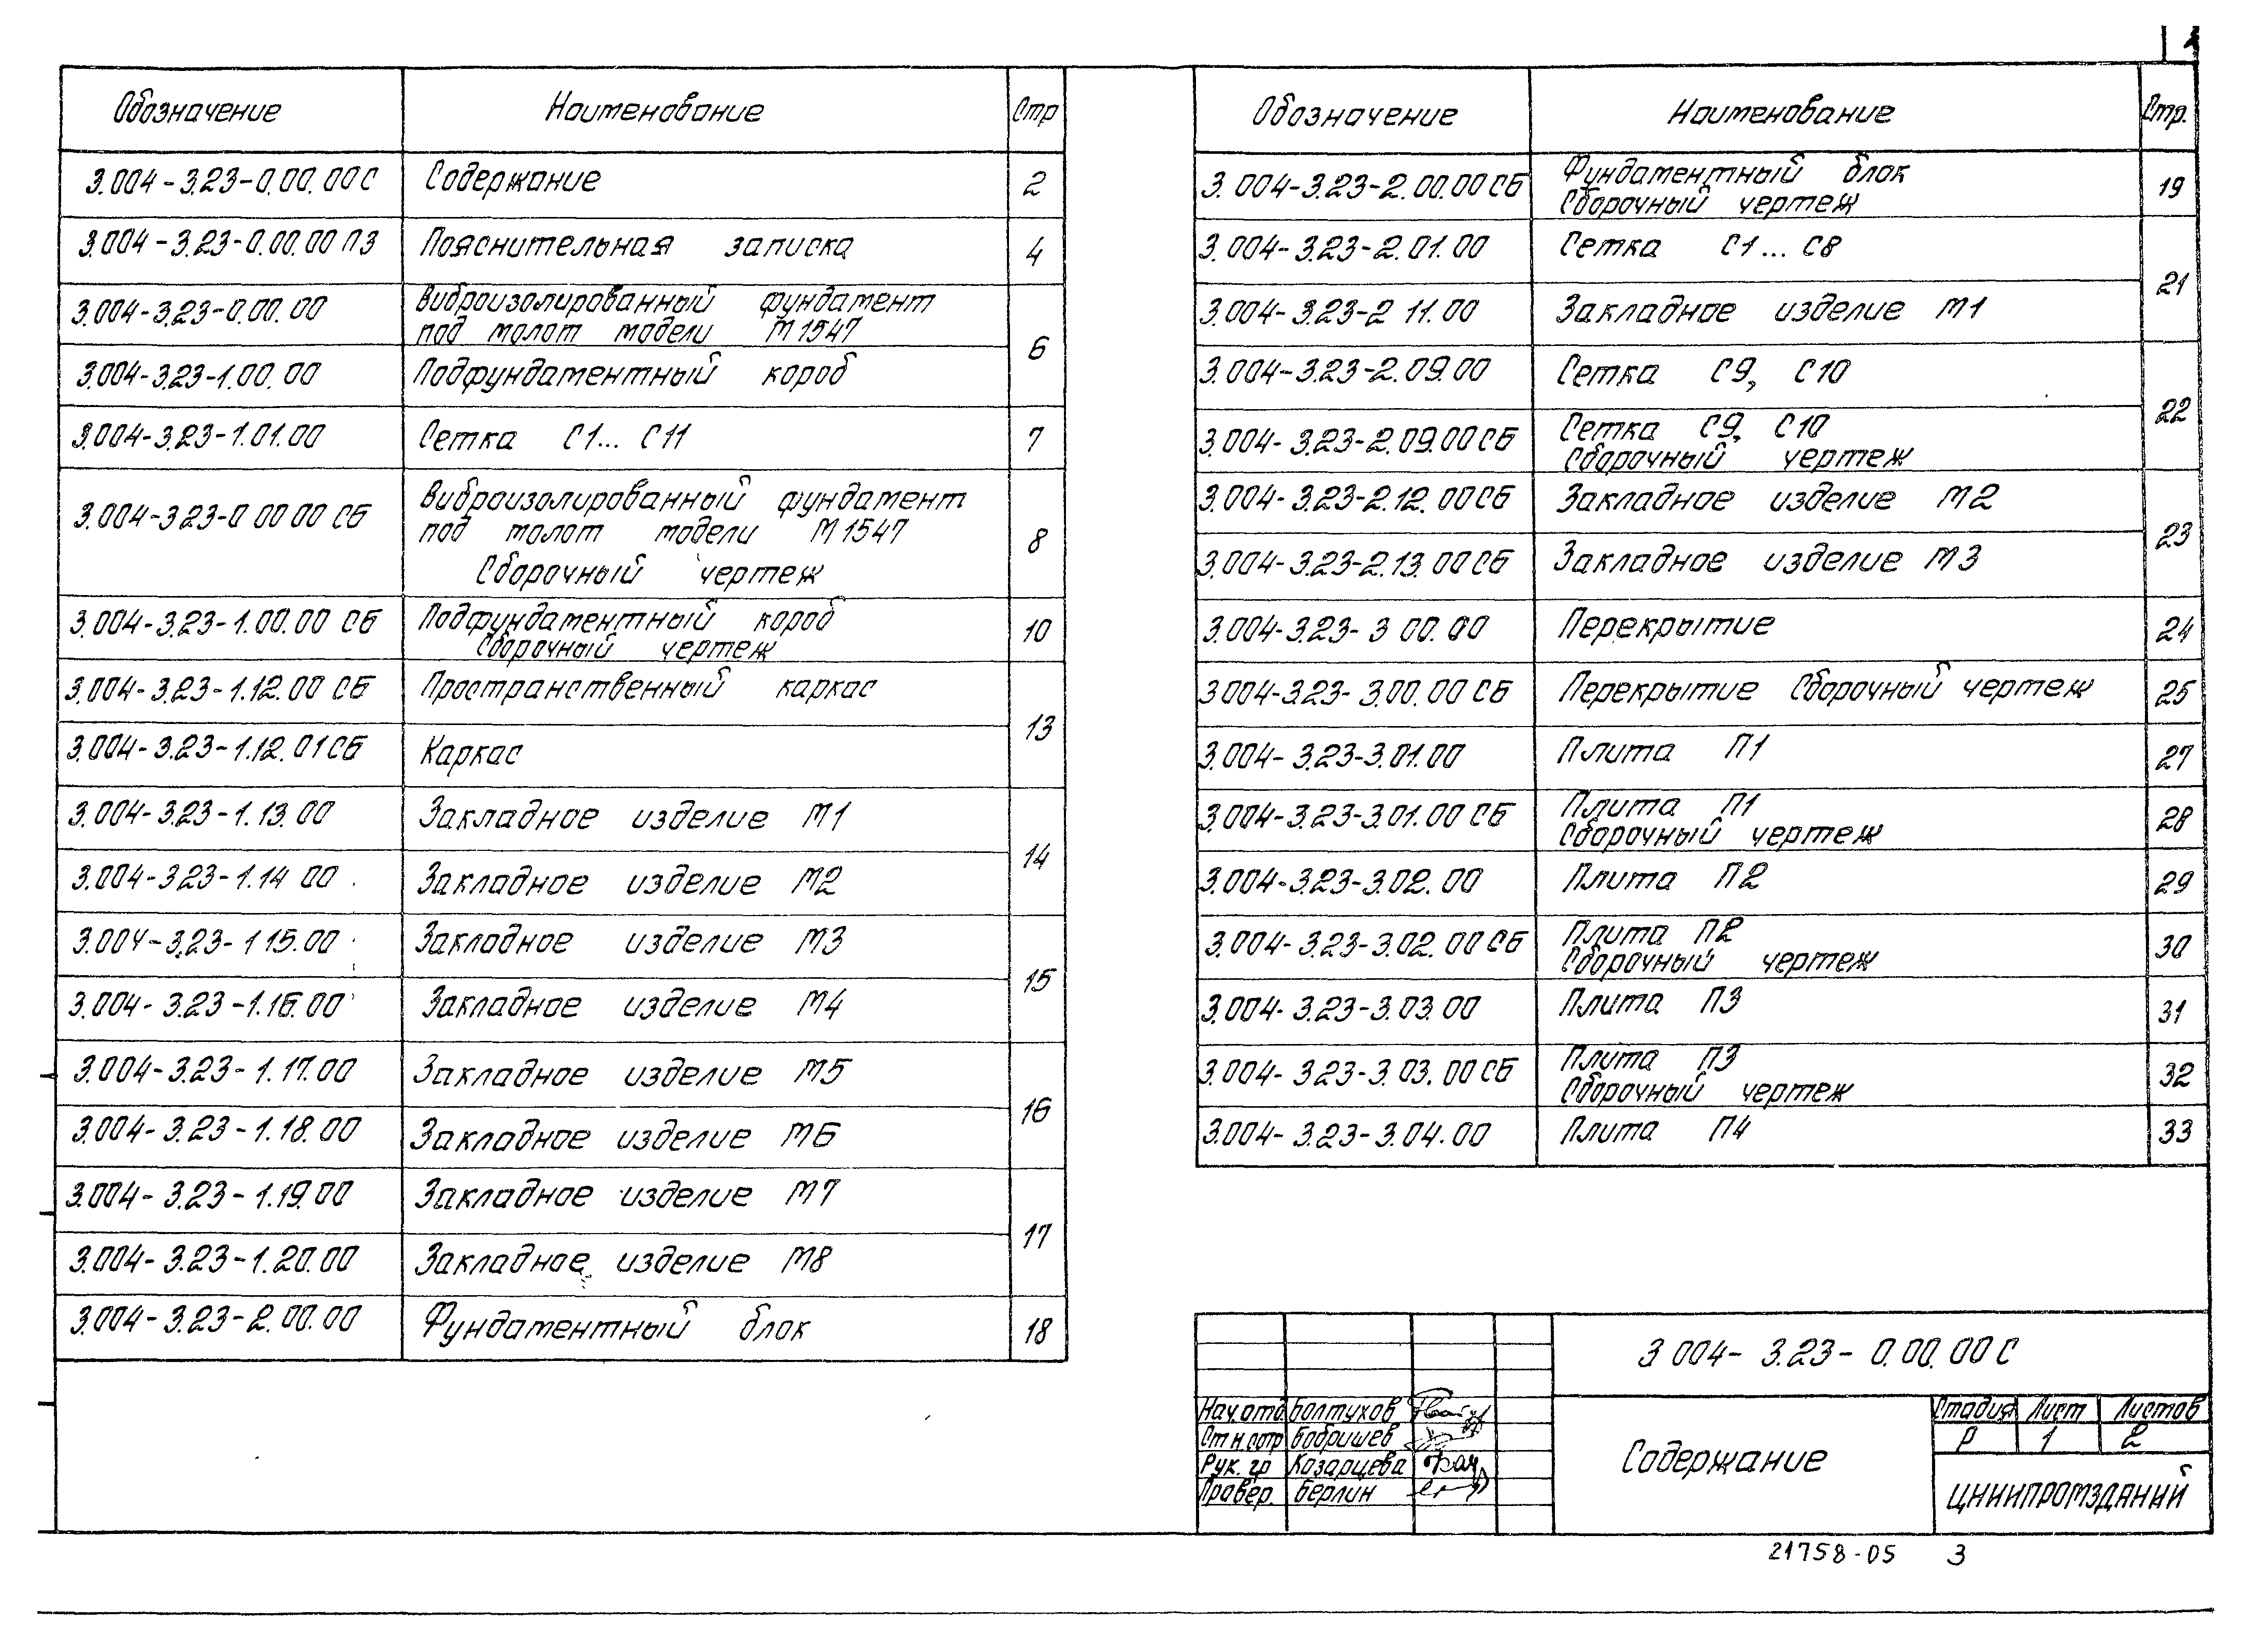 Обозначение Наименование Стр
3.004-3.23-0.00.00С Содержание 2
3.004-3.23-0.00.00 ПЗ Пояснительная записка 4
3.004-3.23-0.00.00 Виброизолированный фундамент
под молот модели М1547
6
3.004-3.23-1.00.00 Подфундаментный короб
3.004-3.23-1.01.00 Сетка С1... С11 7
3.004-3.23-0 00 00 СБ Виброизолированный фундамент
под молот модели М1547
Сборочный чертеж
8
3.004-3.23-1.00.00 СБ Подфундаментный короб
Сборочный чертеж
10
3.004-3.23-1.12.00 СБ Пространственный каркас
13
3.004-3.23-1.12.01СБ Каркас
3.004-3.23-1.13.00 Закладное изделие М1
14
3.004-3.23-1.14 00 Закладное изделие М2
3.004-3.23-1 15.00 Закладное изделие М3
15
3.004-3.23-1.16.00 Закладное изделие М4
3.004-3.23-1.17.00 Закладное изделие М5
16
3.004-3.23-1.18.00 Закладное изделие М6
3.004-3.23-1.19.00 Закладное изделие М7
17
3.004-3.23-1.20.00 Закладное изделие М8
3.004-3.23-2.00.00 Фундаментный блок 18
Обозначение Наименование Стр.
3.004-3.23-2.00.00СБ Фундаментный блок
Сборочный чертеж
19
3.004-3.23-2.01.00 Сетка С1... С8
21
3.004-3.23-2 11.00 Закладное изделие М1
3.004-3.23-2.09.00 Сетка С9, С10
22
3.004-3.23-2.09.00СБ Сетка С9, С10
Сборочный чертеж
3.004-3.23-2.12.00СБ Закладное изделие М2
23
3.004-3.23-2.13.00СБ Закладное изделие М3
3.004-3.23-3 00.00 Перекрытие 24
3.004-3.23-3.00.00СБ Перекрытие Сборочный чертеж 25
3.004-3.23-3.01.00 Плита П1 27
3.004-3.23-3.01.00 СБ Плита П1
Сборочный чертеж
28
3.004-3.23-3.02.00 Плита П2 29
3.004-3.23-3.02.00СБ Плита П2
Сборочный чертеж
30
3.004-3.23-3.03.00 Плита П3 31
3.004-3.23-3.03.00СБ Плита П3
Сборочный чертеж
32
3.004-3.23-3.04.00 Плита П4 33
3 004-3.23-0.00.00С
Нач.отд Болтухов
Ст н.сотр Бобришев
Рук. гр Казарцева
Провер. Берлин
Содержание
Стадия Лист Листов
Р 1 2
ЦНИИПРОМЗДАНИЙ
21758-05 3